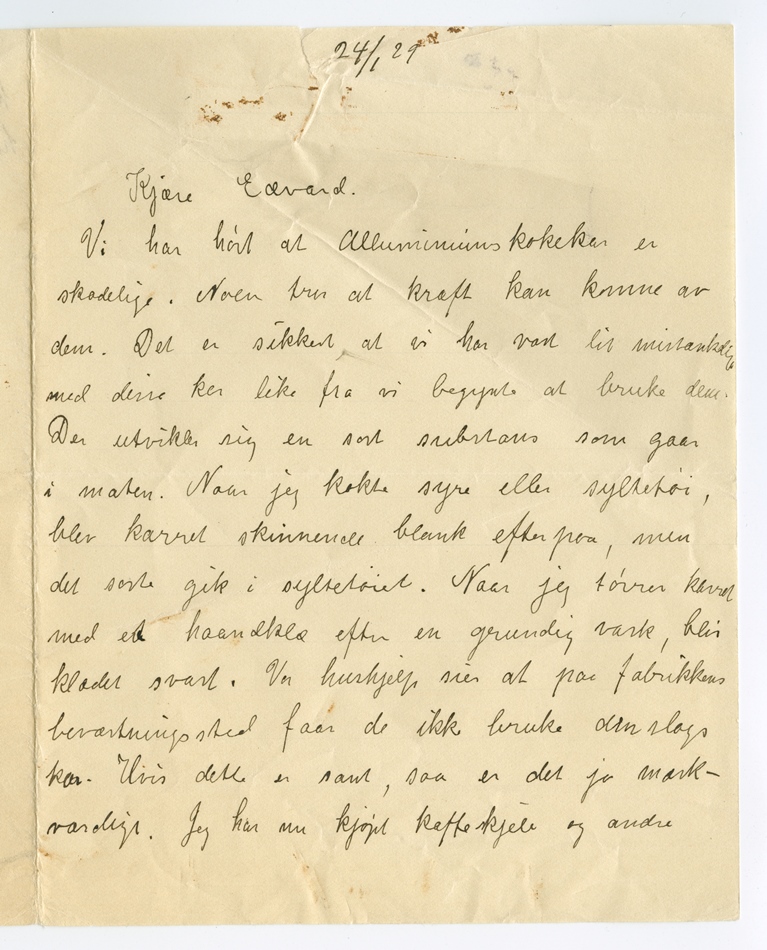 24/1 29
Kjære Edvard.
Vi har hørt at Alluminiumskokekar er
skadelige. Noen tror at kræft kan komme av
dem. Det er sikkert at vi har vært lit mistænkelige
med disse kar like fra vi begynte at bruke dem.
Der utvikler sig en sort substans som gaar
i maten. Naar jeg kokte syre eller syltetøi,
blev karret skinnende blank efterpaa, men
det sorte gik i syltetøiet. Naar jeg tørrer karret
med et haandklæ efter en grundig vask, blir
klædet svart. Vor hushjelp sier at paa fabrikkens
beværtningssted faar de ikke bruke den slags
kar. Hvis dette er sant, saa er det jo mærk-
værdigt. Jeg har nu kjøpt kaffekjele og andre